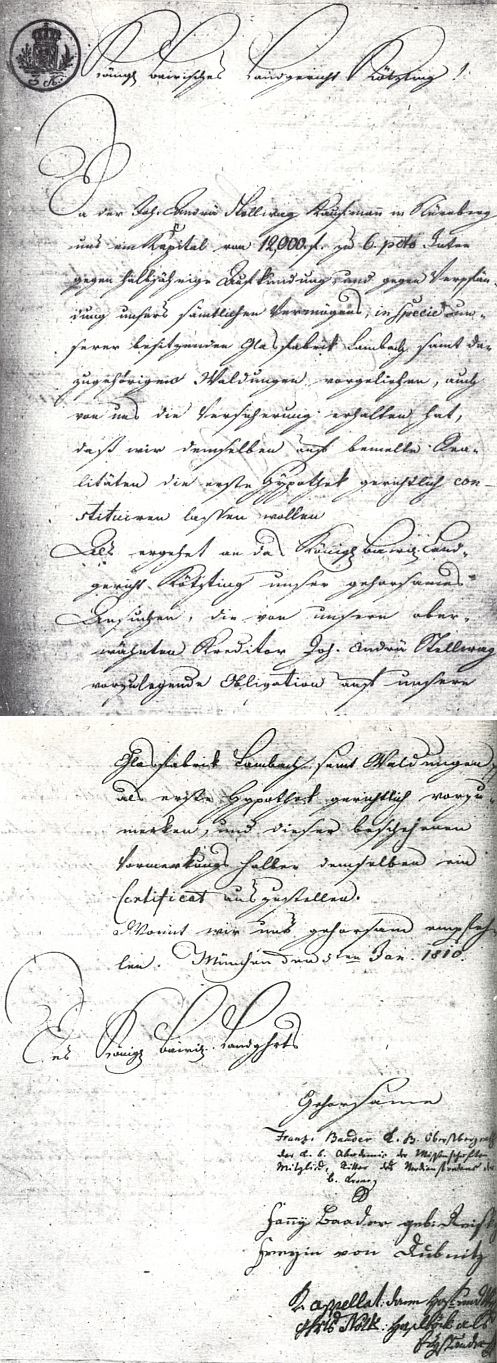 3 K.
Königl. bairisches Landgericht Kötzting!
Da der Joh. Andrä Stellwag Kaufmann in Nürnberg
uns ein Kapital von 12,000 f. zu 6 pcto Inter
gegen halbjährige Aufkündung, und gegen Verpfän-
dung unsers sämtlichen Vermögens, in specie un-
serer besitzenden Glasfabrik Lambach samt da-
zugehörigen Waldungen vorgeliehen, auch
von uns die Versicherung erhalten hat,
daß wir demselben auf bemelte Rea-
litäten die erste Hypothek gerichtlich con-
stituiren lassen wollen
Als ergehet an das Königl. bairis. Land-
gericht Kötzting unser gehorsames
Ansuchen, die von unserm ober-
wähnten Kreditor Joh. Andrä Stellwag
vorzulegende Obligation auf unsere
Glasfabrik Lambach samt Waldungen
als erste Hypothek gerichtlich vorzu
merken, und dieser beschehenen
Vormerkung halber demselben ein
Certificat auszustellen.
Womit wir uns gehorsam empfeh-
len. München den 5ten Jan. 1810.
Des Königl. bairis. Landghrts
Gehorsame
Franz Baader K. B. Oberstbergrath
der k. b. Akademie der Wissenschaften
Mitglied, Ritter des Verdienstordens der
b. Krone
Fanny Baader geb. Reisky
Freyin von Dubnitz
Appellat. dann Hof und
Ghrts als
Beystander